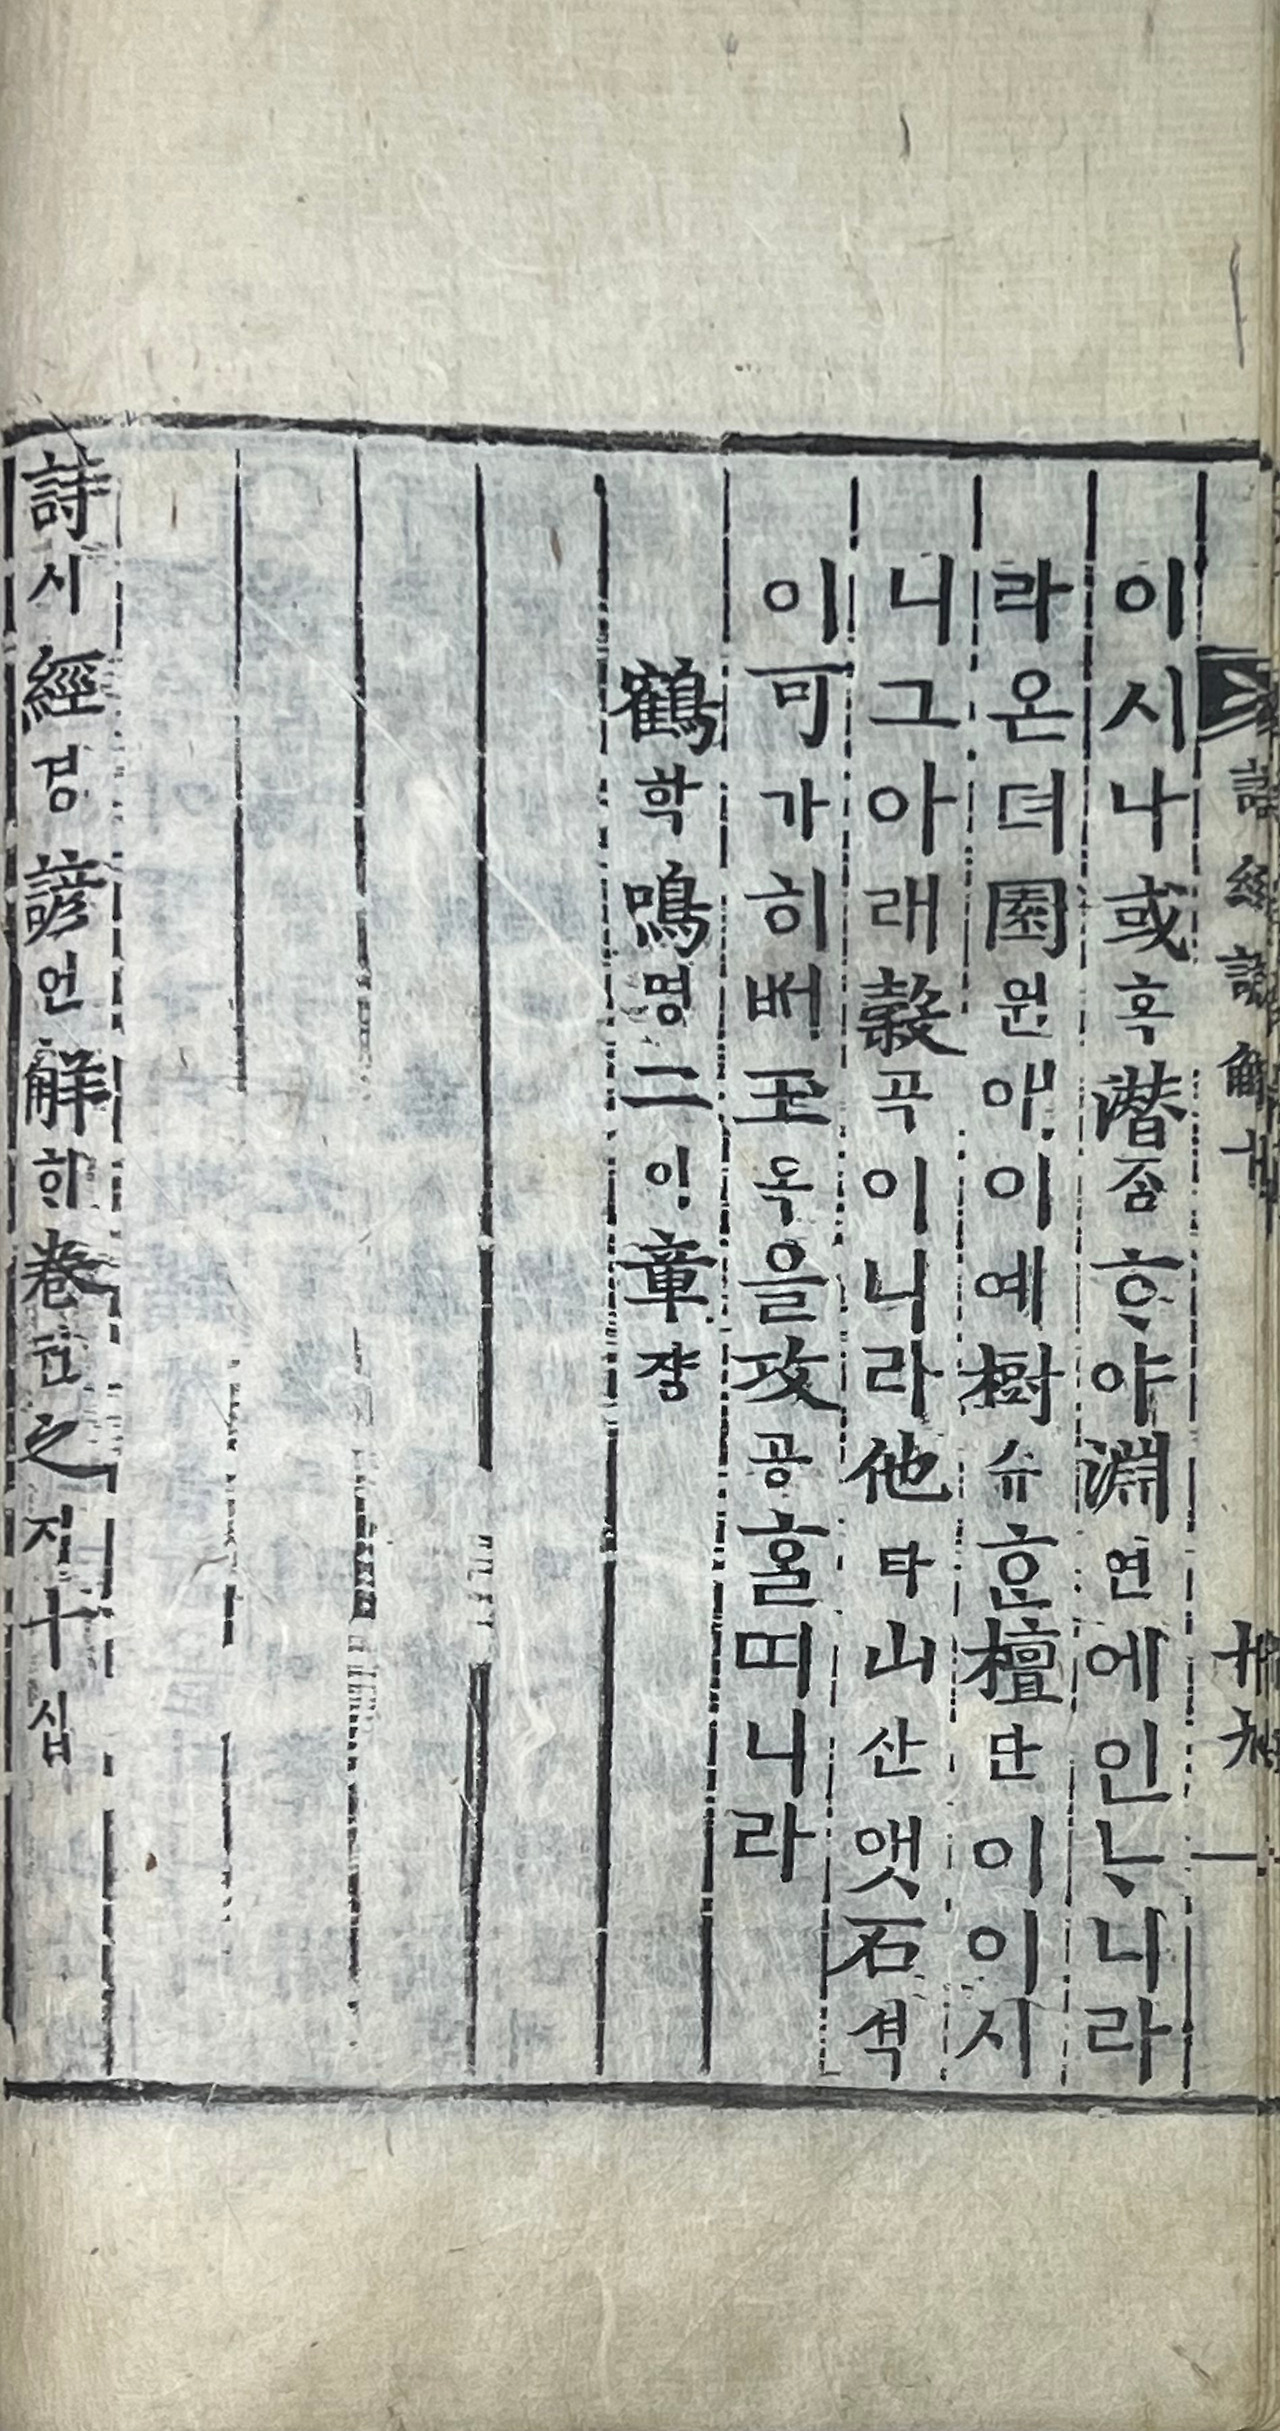 詩經諺解
이시나或혹潛ᄌᆞᆷᄒᆞ야淵연에인ᄂᆞ니라
라온뎌園원애이예樹슈ᄒᆞᆫ檀단이이시
니그아래榖곡이니라他타山산앳石셕
이可가히ᄡᅥ玉옥을攻공홀띠니라
鶴학鳴명二이章쟝
詩시經경諺언解ᄒᆡ卷권之지十십